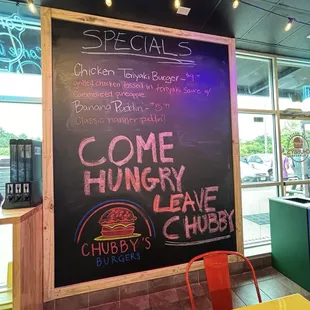 SPECIALS
Chicken Teriyaki Burger
chicken tossed in teriyaki sauce w/
pineapple
Banana Puddin
(Classic nanner puddin)
COME
HUNGRY
LEAVE
CHUBBY
CHUBBY'S
BURGERS